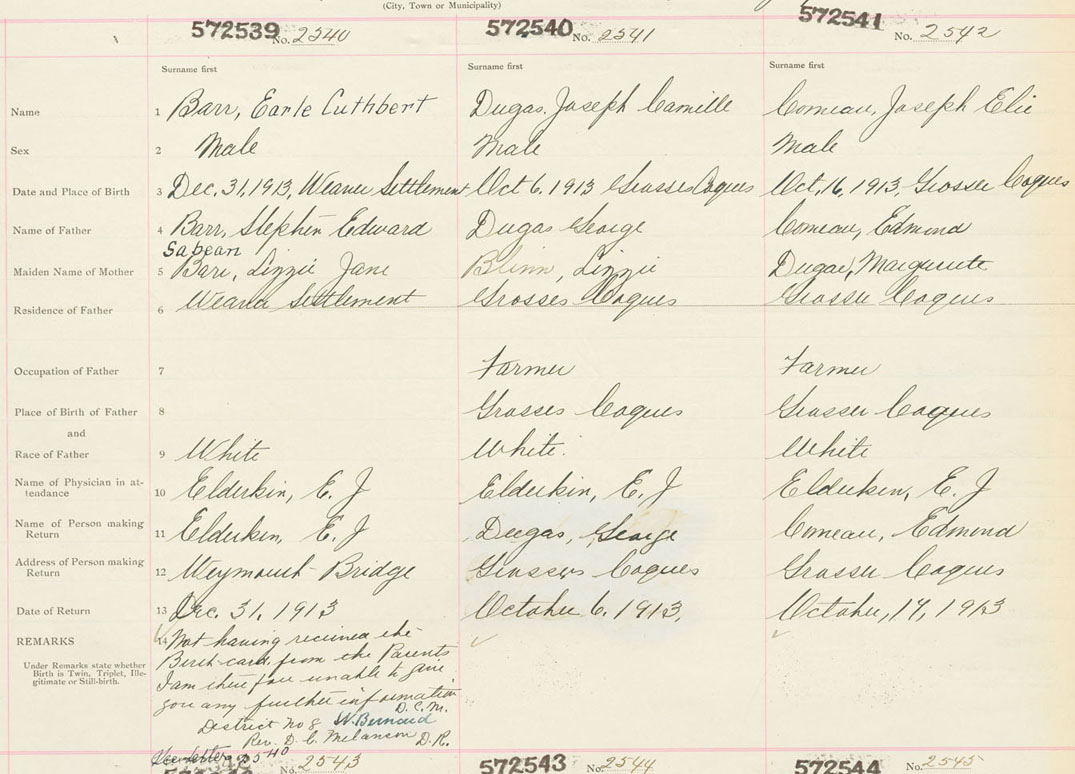 (City, Town or Municipality)
572539 No. 2540 572540 No. 2541 572541 No. 2542
Surname first Surname first Surname first
Name 1 Barr, Earle Cuthbert Dugas, Joseph Camille Comeau, Joseph Elie
Sex 2 Male Male Male
Date and Place of Birth 3 Dec. 31, 1913, Weaver Settlement Oct 6. 1913 Grosses Coques Oct, 16, 1913 Grosses Coques
Name of Father 4 Barr, Stephen Edward Dugas George Comeau, Edmond
Sabean
Maiden Name of Mother 5 Barr, Lizzie Jane Blinn, Lizzie Dugas, Marguerite
Residence of Father 6 Weaver Settlement Grosses Coques Grosses Coques
Occupation of Father 7 Farmer Farmer
Place of Birth of Father 8 Grosses Coques Grosses Coques
and
Race of Father 9 White White. White
Name of Physician in at-
tendance 10 Elderkin, E. J Elderkin, E. J Elderkin, E. J
Name of Person making
Return 11 Elderkin, E. J Dugas, George Comeau, Edmond
Address of Person making
Return 12 Weymouth Bridge Grosses Coques Grosses Coques
Date of Return 13 Dec. 31, 1913 October 6, 1913, October, 17, 1913
REMARKS 14 Not having received the
Birth card from the Parents
Under Remarks state whether
Birth is Twin, Triplet, Ille-
gitimate or Still-birth.
I am therefore unable to give
you any further information
D. C. M.
District No 8 St. Bernard
Rev. D. C. Melanson D. R.
See letter 2540
No. 2543 572543 No. 2544 572544 No. 2545